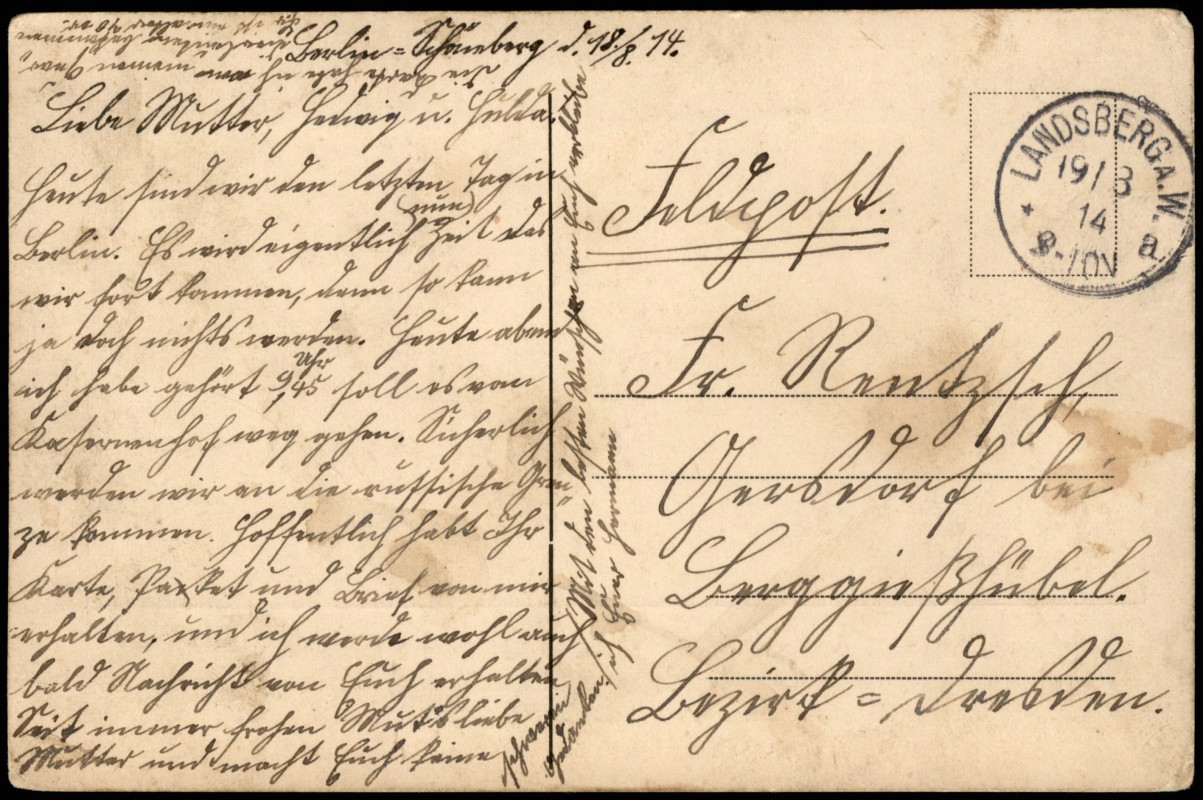 Berlin=Schöneberg d. 18/8. 14.
Liebe Mutter, Hedwig u. Hulda.
Heute sind wir den letzten Tag in
Berlin. Es wird eigentlich (nun) Zeit das
wir fort kommen, denn so kann
ja doch nichts werden. Heute abend
ich habe gehört 9,45 Uhr soll es vom
Kasernenhof weg gehen. Sicherlich
werden wir an die russische Gren„
ze kommen. Hoffentlich habt Ihr
Karte, Packet und Brief von mir
erhalten, und ich werde wohl auch
bald Nachricht von Euch erhalten
Seit immer frohen Mut's liebe
Mutter und macht Euch keine
schweren
Gedanken.
Mit den besten Wünschen an Euch verbleibe
ich Euer Hermann
Feldpost.
Fr. Rentzsch,
Gersdorf bei
Berggießhübel.
Bezirk = Dresden.
LANDSBERG a. W.
19/8
14
8-10V
* a.